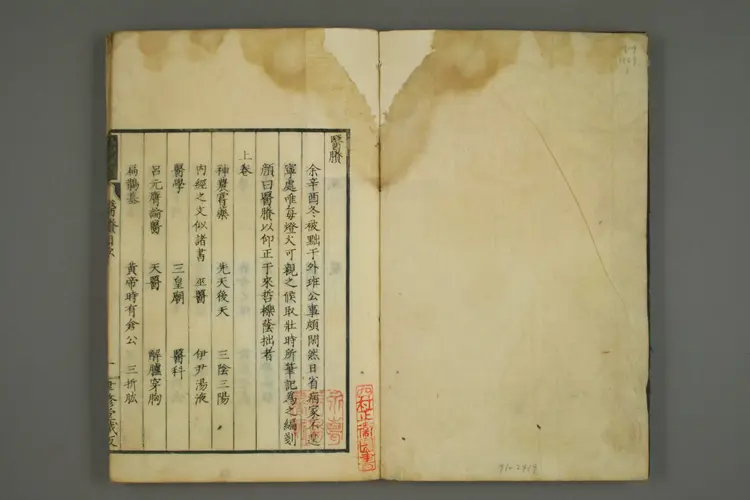 醫賸
余辛酉冬被黜于外班公事頗閑然日省病家不遑
寧處唯每燈火可親之候取壯時所筆記為之編刻
顏曰醫賸以仰正于來哲櫟蔭拙者
上卷
神農嘗藥 先天後天 三陰三陽
內經之文似諸書 巫醫 伊尹湯液
醫學 三皇廟 醫科
呂元膺論醫 天醫 解臚穿胸
扁鵲墓 黃帝時有倉公 三折肱
醫賸目次
一